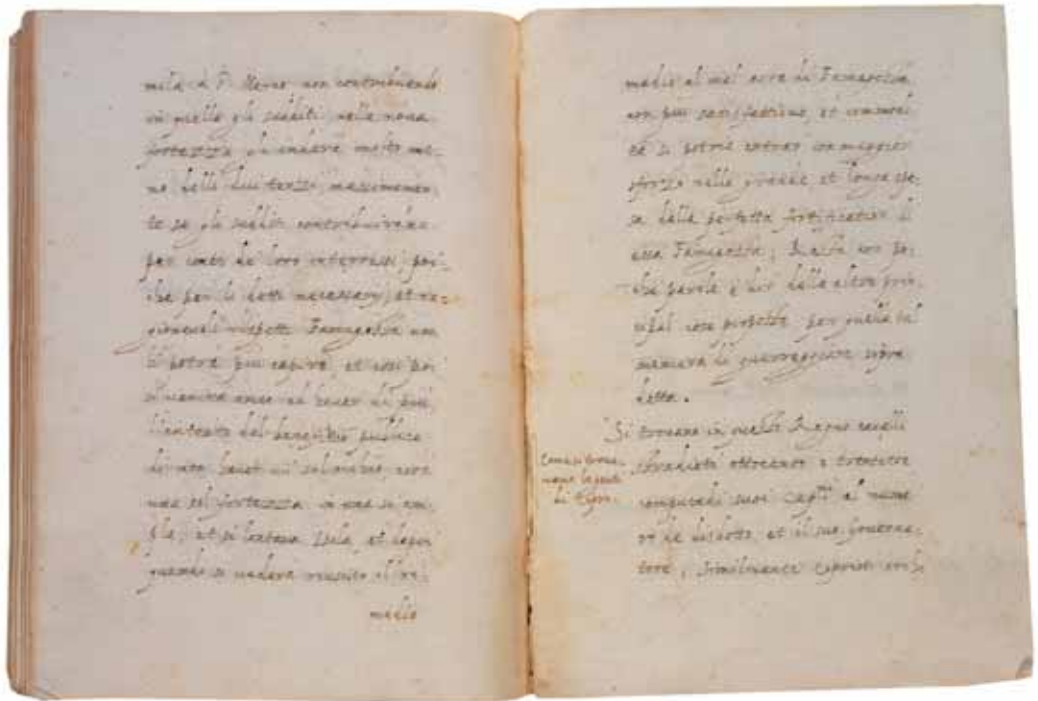 mila d. P. Meno non contribuendo
in quella gli sudditi nella nova
fortezza si anderà molto me-
no delli dui terzi, massimamen-
te se gli sudditi contribuiranno
per conto de loro interessi, poi-
che per li detti necessarÿ, et ra-
gioneuoli rispetti Famagosta non
si potrà piu capire, et cosi poi
si uenirà anco ad hauer di piu
l'intento del benefitio publico
di non hauer in
una sol fortezza in una si am-
pla, et si lontana Isola, et dopoi
quando si uederà reuscito il re-
medio
medio al mal aere di Famagosta
non piu satisfattione, et commodi-
tà si potrà entrar con maggior
sforzo nella grande et longa spe-
sa della perfetta fortification di
essa Famagosta; Resta con po-
che parole à dir delle altre prin-
cipal cose proposte per quella tal
maniera di guerreggiare sopra
detta.
Si trouano in questo Regno caualli
stradioti ottocento e trentatre
computadi suoi Cap.ni al nume-
ro de disdotto, et il suo gouerna-
tore, Similmente Caprioti con li
Come si troua-
uano le genti
di Cipro.